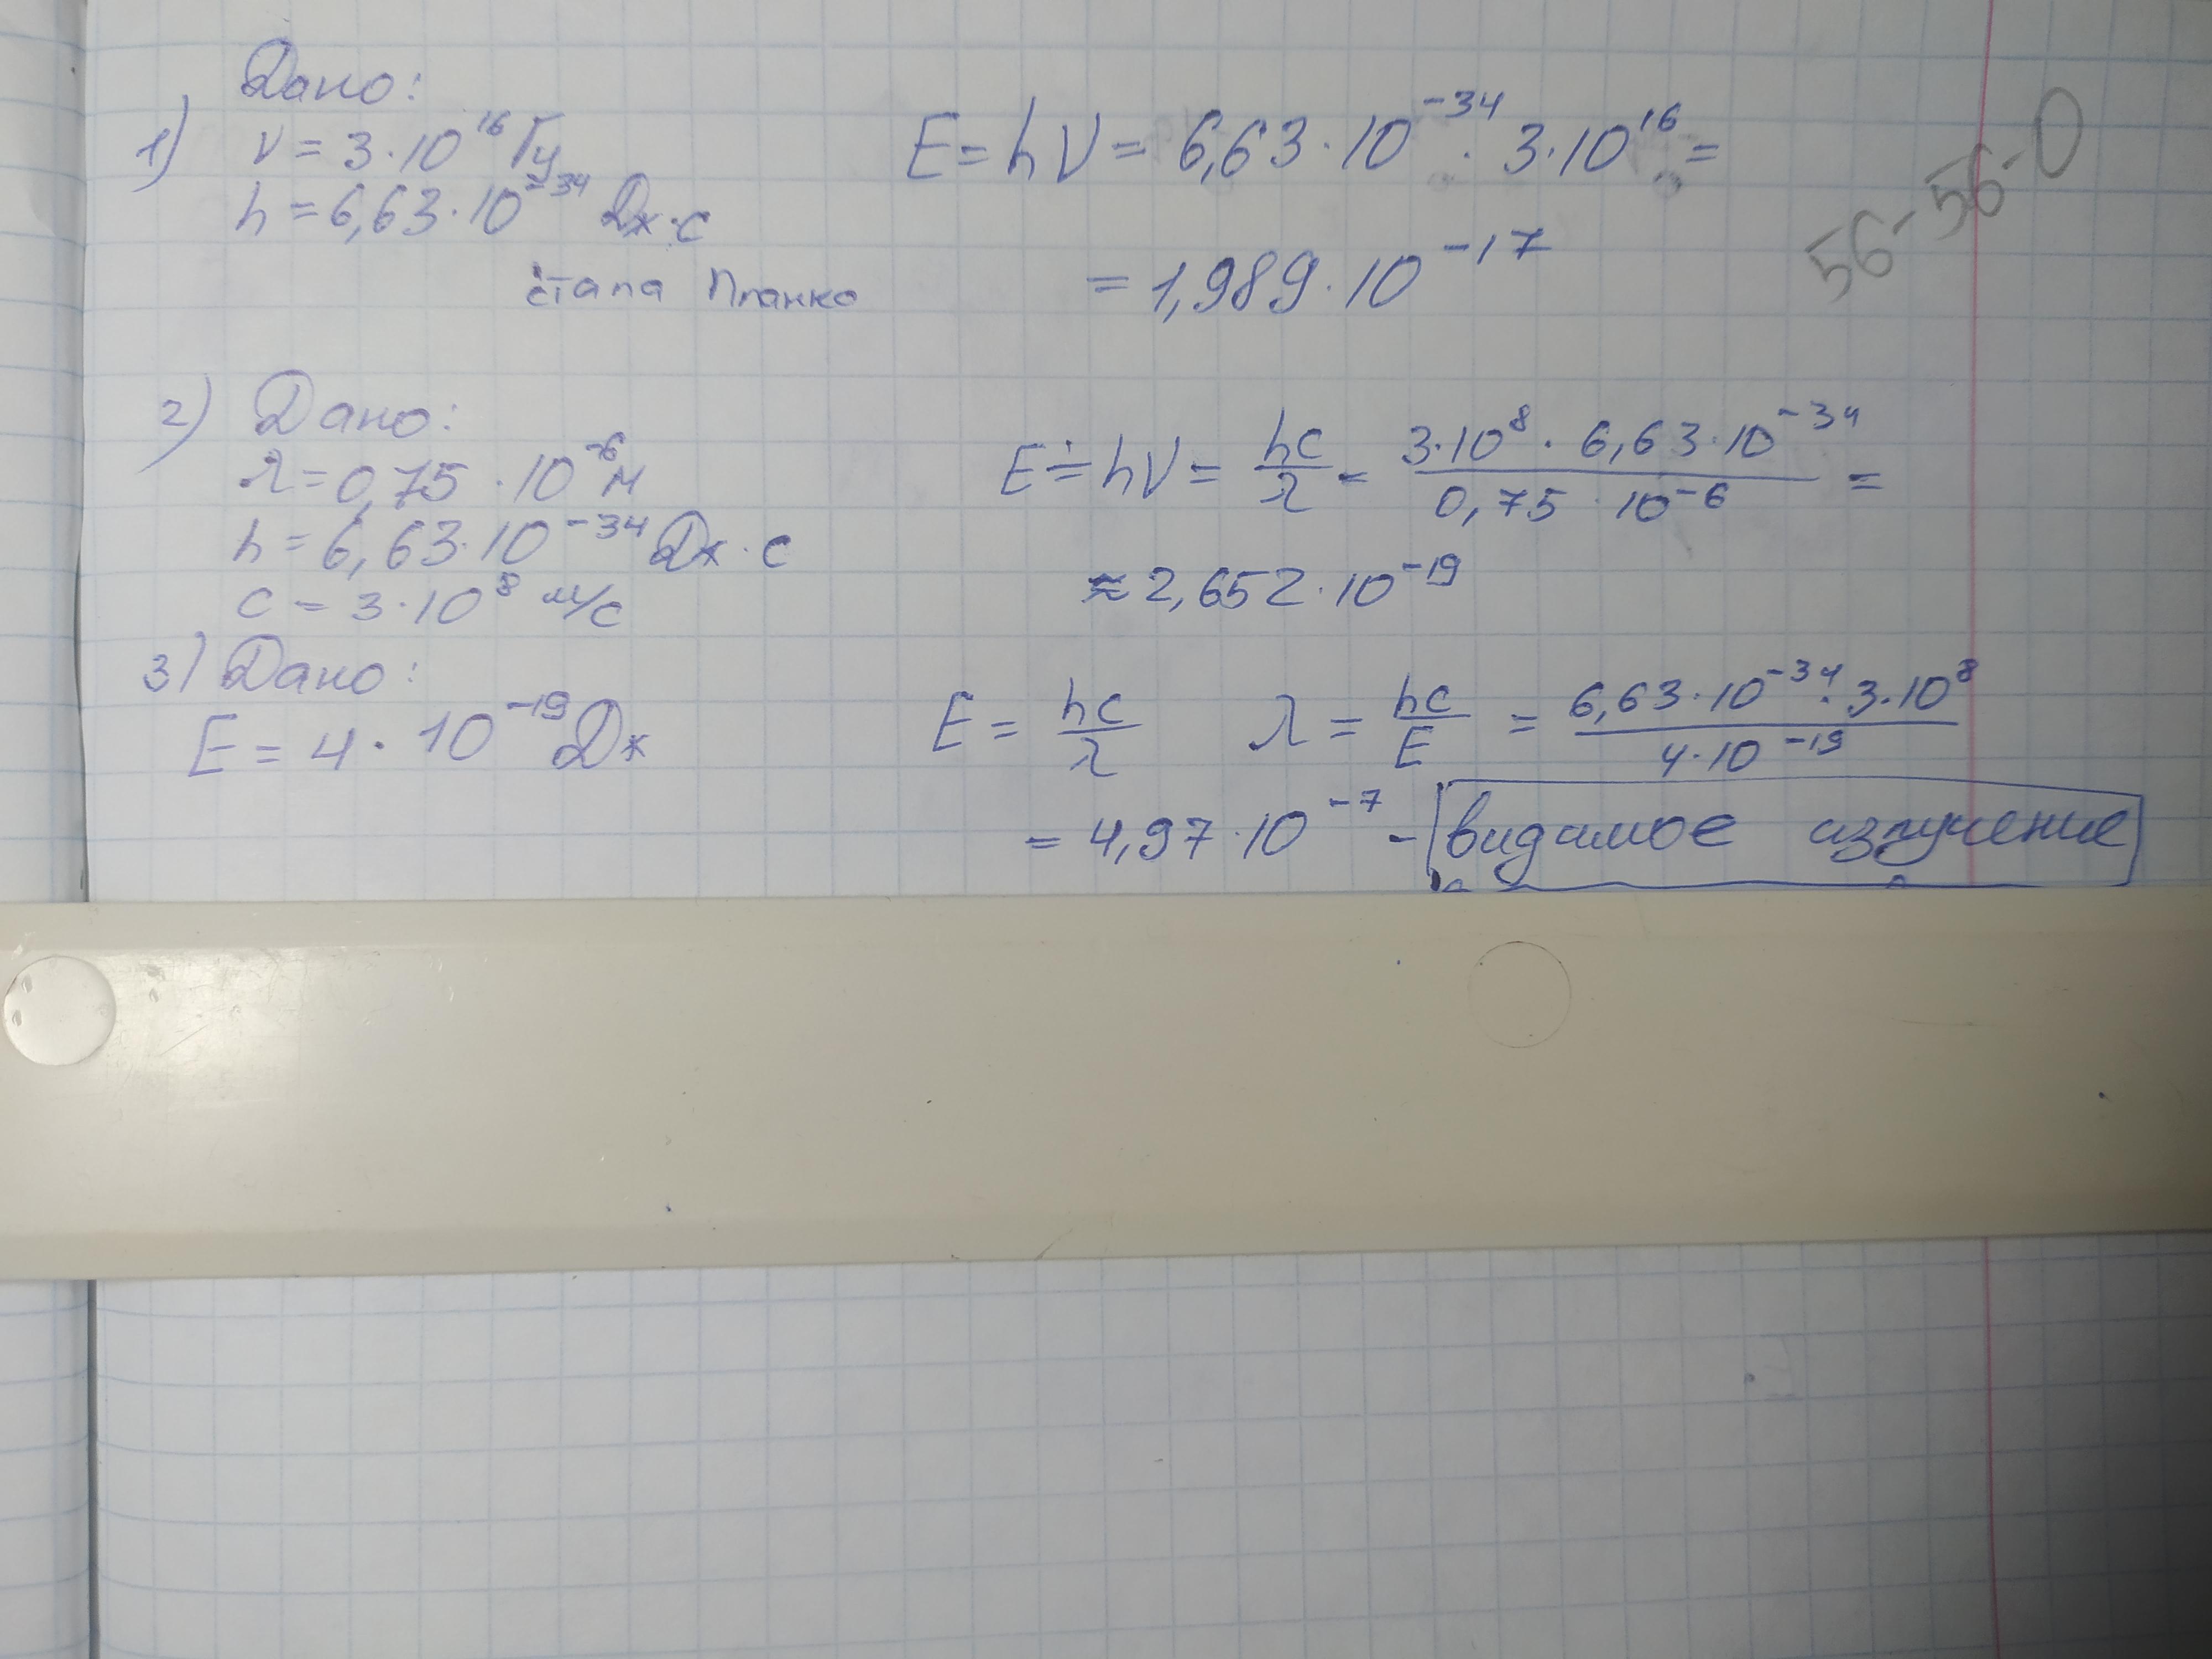 Дано:
1) ν = 3·10¹⁶ Гц
h = 6,63·10⁻³⁴ Дж·с
Планка
E = hν = 6,63·10⁻³⁴ · 3·10¹⁶ =
= 1,989·10⁻¹⁷
56-56-0
2) Дано:
λ = 0,75 · 10⁻⁶ м
h = 6,63·10⁻³⁴ Дж·с
c = 3·10⁸ м/с
E = hν = hc/λ = 3·10⁸ · 6,63·10⁻³⁴ / 0,75 · 10⁻⁶ =
≈ 2,652·10⁻¹⁹
3) Дано:
E = 4· 10⁻¹⁹ Дж
E = hc/λ λ = hc/E = 6,63·10⁻³⁴ · 3·10⁸ / 4·10⁻¹⁹
= 4,97·10⁻⁷ - видимое излучение